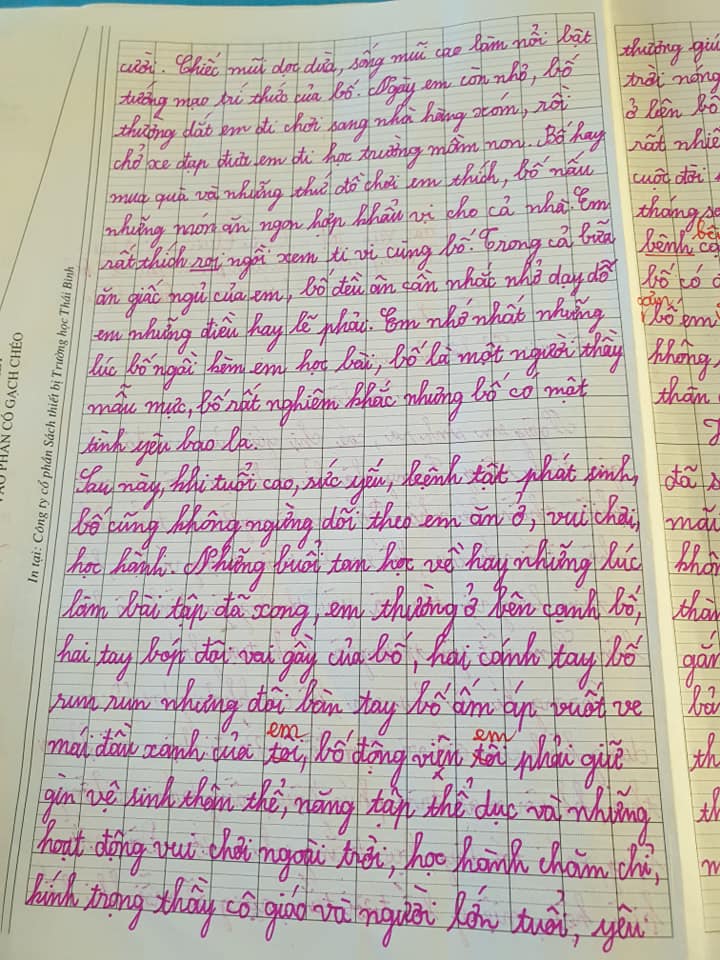 cười. Chiếc mũi dọc dừa, sống mũi cao làm nổi bật
tướng mạo trí thức của bố. Ngày em còn nhỏ, bố
thường dắt em đi chơi sang nhà hàng xóm, rồi
chở xe đạp đưa em đi học trường mầm non. Bố hay
mua quà và những thứ đồ chơi em thích, bố nấu
những món ăn ngon hợp khẩu vị cho cả nhà. Em
rất thích ngồi xem ti vi cùng bố. Trong cả bữa
ăn giấc ngủ của em, bố đều ân cần nhắc nhở dạy dỗ
em những điều hay lẽ phải. Em nhớ nhất những
lúc bố ngồi kèm em học bài, bố là một người thầy
mẫu mực, bố rất nghiêm khắc nhưng bố có một
tình yêu bao la.
Sau này, khi tuổi cao, sức yếu, bệnh tật phát sinh,
bố cũng không ngừng dõi theo em ăn ở, vui chơi,
học hành. Những buổi tan học về hay những lúc
làm bài tập đã xong, em thường ở bên cạnh bố,
hai tay bóp đôi vai gầy của bố, hai cánh tay bố
run run nhưng đôi bàn tay bố ấm áp vuốt ve
em em
mái đầu xanh của tôi, bố động viên tôi phải giữ
gìn vệ sinh thân thể, năng tập thể dục và những
hoạt động vui chơi ngoài trời, học hành chăm chỉ,
kính trọng thầy cô giáo và người lớn tuổi, yêu
VÀO PHẦN CÓ GẠCH CHÉO
In tại: Công ty cổ phần Sách thiết bị Trường học Thái Bình
thường giú
trời nắng
ở bên bố
rất nhiê
cuộc đời
tháng
bên
bệnh
bố có
bố em
không
thân
đã
mãi
khôn
thàn
gắn
bả
th
th
m